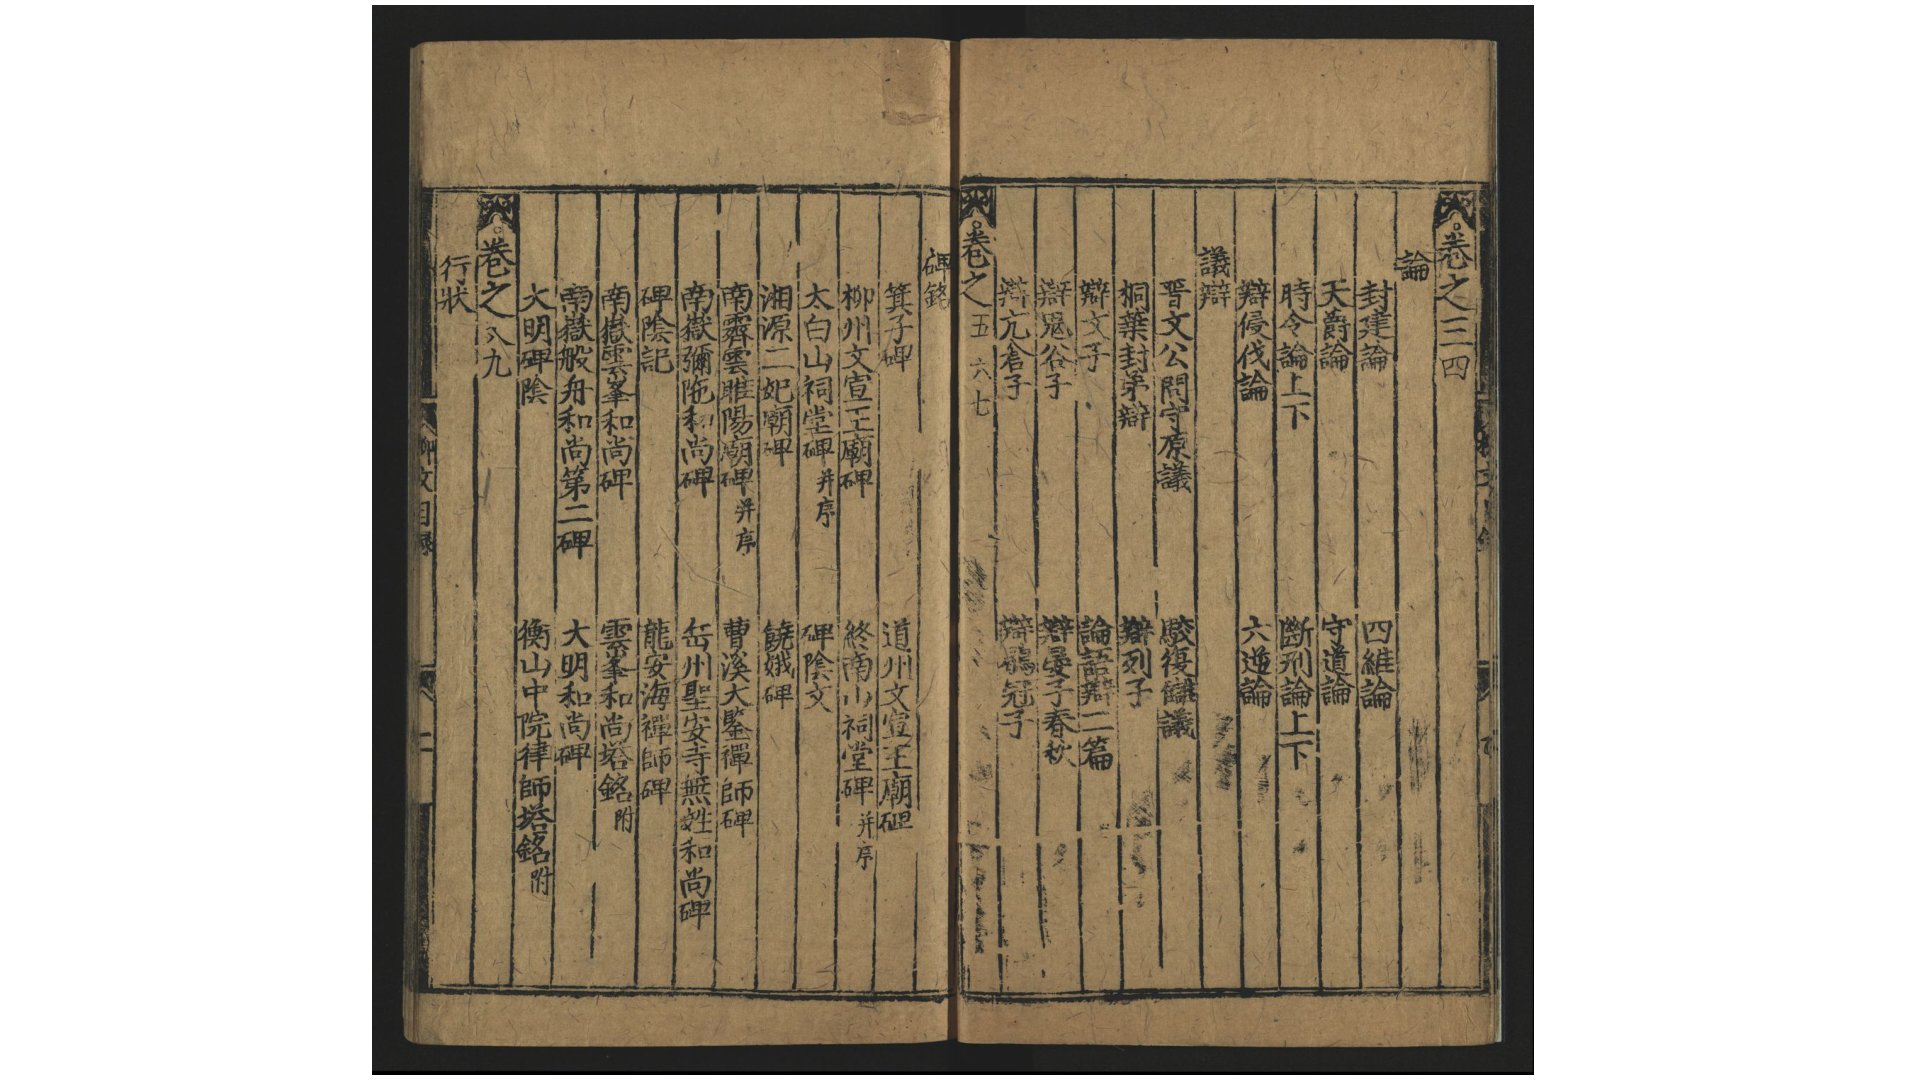 卷之三四
論
封建論 四維論
天爵論 守道論
時令論上下 斷刑論上下
辯侵伐論 六逆論
議辯
晉文公問守原議 駁復讎議
桐葉封弟辯 辯列子
辯文子 論語辯二篇
辯鬼谷子 辯晏子春秋
辯亢倉子 辯鶡冠子
卷之五 六 七
碑銘
箕子碑 道州文宣王廟碑
柳州文宣王廟碑 終南山祠堂碑并序
太白山祠堂碑并序 碑陰文
湘源二妃廟碑 饒娥碑
南霽雲睢陽廟碑并序 曹溪大鑒禪師碑
南嶽彌陁和尚碑 岳州聖安寺無姓和尚碑
碑陰記 龍安海禪師碑
南嶽雲峯和尚碑 雲峯和尚塔銘附
南嶽般舟和尚第二碑 大明和尚碑
大明碑陰 衡山中院律師塔銘附
卷之八九
行狀
柳文目録
二